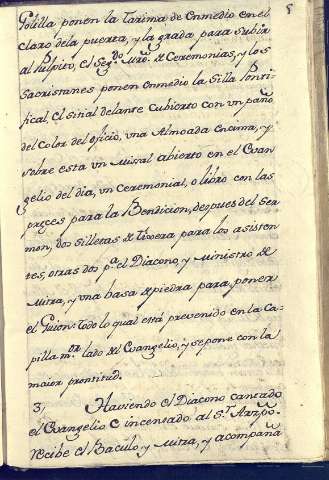 5
Golilla ponen la Tarima de Enmedio en el
claro dela puerta, y la grada para subir
al Pulpito, el Seg.do Mro. de Ceremonias, y los
Sacristanes ponen enmedio la Silla Ponti-
fical, el sitial delante cubierto con un paño
del Color del oficio, una Almoada encima, y
sobre esta un Missal abierto en el Evan-
gelio del dia, un Ceremonial, o libro con las
preces para la Bendicion, despues del Ser-
mon, dos Silletas de tixera para los asisten-
tes, otras dos p.a el Diacono, y Ministro de
Mitra, y una basa de piedra para poner
el Guion: todo lo qual está prevenido en la Ca-
pilla m.or lado del Evangelio, y se pone con la
maior prontitud.
3, Haviendo el Diacono cantado
el Evangelio e incensado al S.r Arzpo.
recibe el Baculo, y Mitra, y acompaña